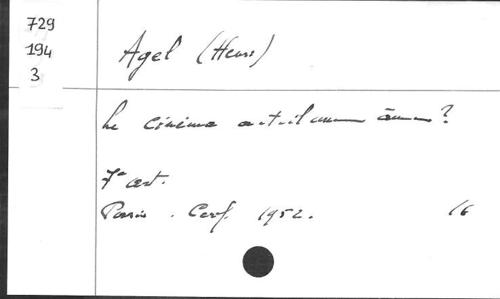 729
194
3
Agel (Henri)
Le cinéma a-t-il une âme ?
7e art.
Paris. Cerf. 1952. 16